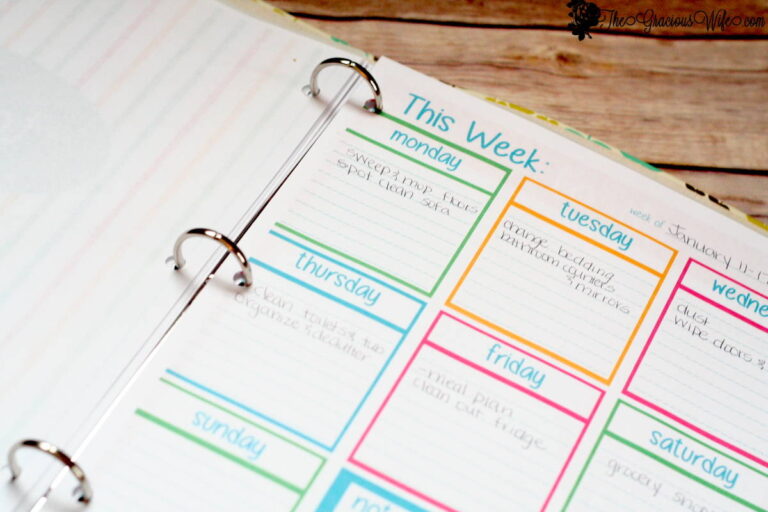 The Gracious Wife.com
This Week:
week of January 11-17
monday
sweep & mop floors
spot clean sofa
tuesday
change bedding
bathroom counters
& mirrors
wedne
dust
wipe doors &
thursday
clean toilets & tub
organize & declutter
friday
-meal plan
clean out fridge
saturday
grocery
sunday
not